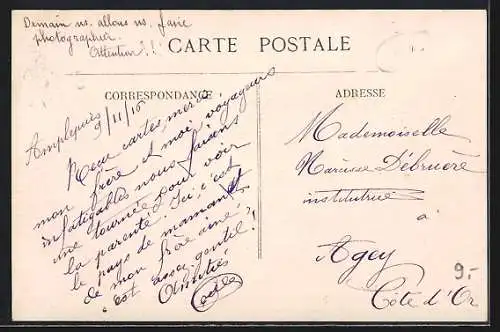 Demain ns. allons ns. faire
photographier.
Attention!!
CARTE POSTALE
CORRESPONDANCE
ADRESSE
Amplepuis
9/11/10
Reçu cartes, merci
mon frère et moi, voyageurs
infatigables nous faisons
une tournée pour voir
la parenté. Ici, c'est
le pays de maman et
de mon frère aîné!
C'est assez gentil!
Amitiés
Mademoiselle
Narcisse Débruère
institutrice
à
Agey
Côte d'Or
9.-